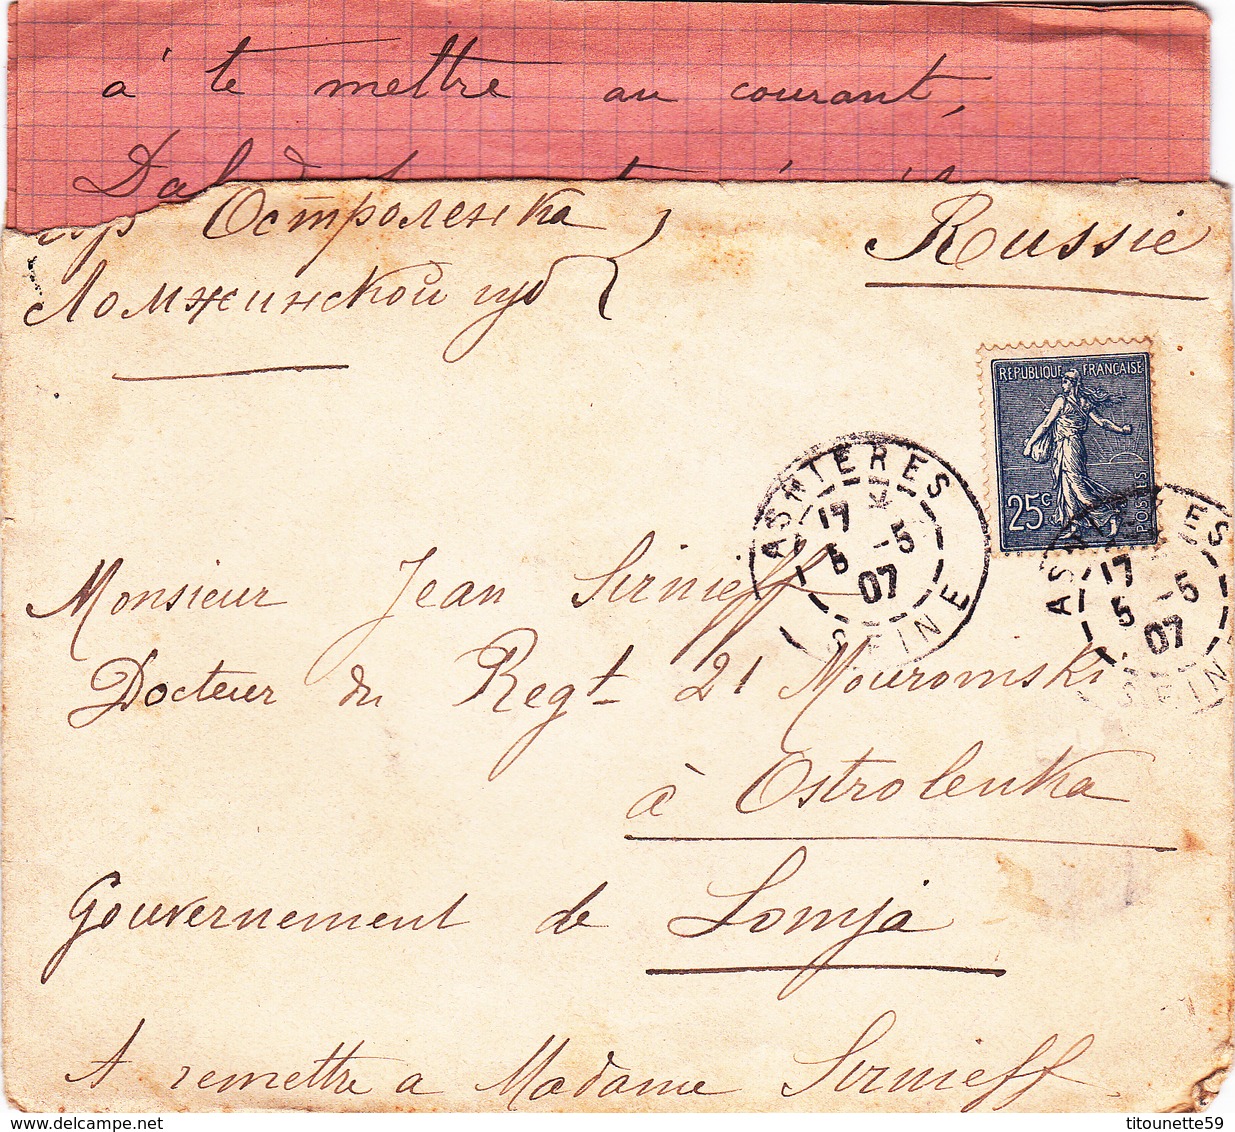 à te mettre au courant,
Остроленка
Ломжинской губ
Russie
RÉPUBLIQUE FRANÇAISE
25c
POSTES
ASNIERES
17
5 -5
07
SEINE
ASNIERES
17
5 -5
07
SEINE
Monsieur Jean Sirnieff
Docteur du Regt 21 Mouromski
à Ostrolenka
Gouvernement de Lomja
A remettre a Madame Sirnieff
www.delcampe.net
titounette59